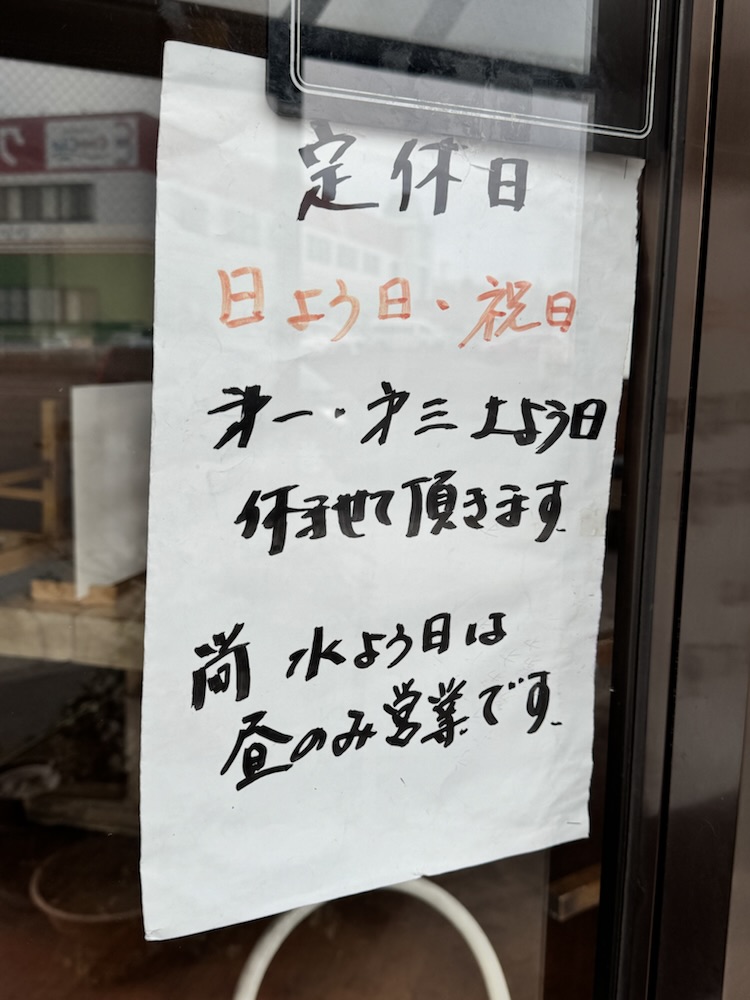 定休日
日よう日・祝日
第一・第三土よう日
休ませて頂きます
尚 水よう日は
昼のみ営業です